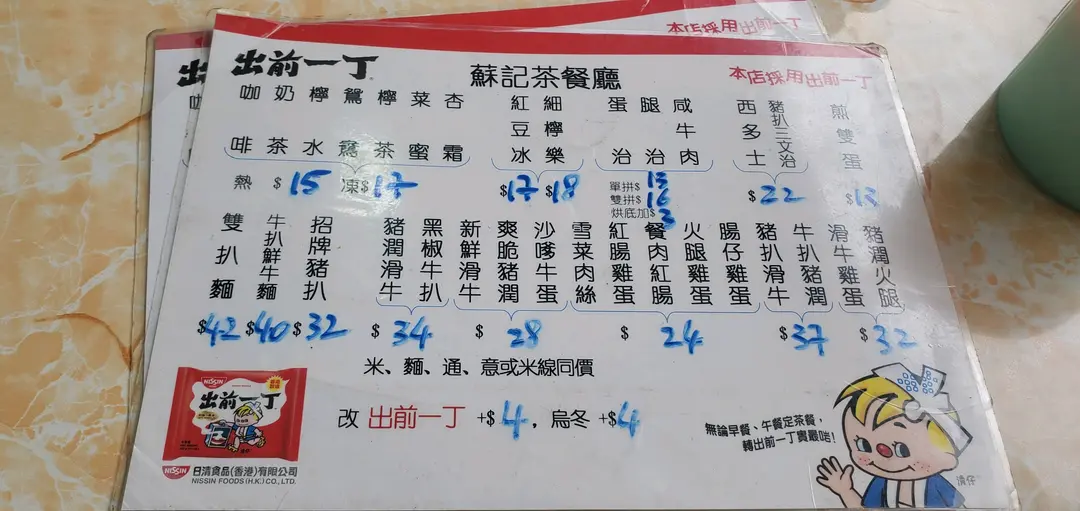 本店採用出前一丁
出前一丁
蘇記茶餐廳
本店採用出前一丁
咖啡
奶茶
檸水
鴛鴦
檸茶
菜蜜
杏霜
熱 $15 凍$17
紅豆冰
細檸樂
$17 $18
蛋治
腿治
咸牛肉
單拼$13
雙拼$16
烘底加$3
西多士
豬扒三文治
$22
煎雙蛋
$13
雙扒麵
$42
牛扒鮮牛麵
$40
招牌豬扒
$32
豬潤滑牛
黑椒牛扒
$34
新鮮滑牛
爽脆豬潤
沙嗲牛蛋
$28
雪菜肉絲
紅腸雞蛋
餐肉紅腸
火腿雞蛋
腸仔雞蛋
$24
豬扒滑牛
牛扒豬潤
$37
滑牛雞蛋
豬潤火腿
$32
米、麵、通、意或米線同價
改 出前一丁 +$4，烏冬 +$4
無論早餐、午餐定茶餐，
轉出前一丁實最啱！
清仔
NISSIN
出前一丁
NISSIN 日清食品(香港)有限公司
NISSIN FOODS (H.K.) CO., LTD.